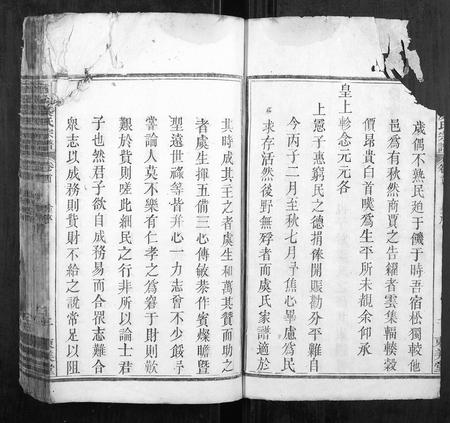 歲偶不熟民迫于饑于時吾宿松獨較他
邑爲有秋然商賈之告糴者雲集輻輳穀
價昂貴白首嘆爲生平所未覩余仰承
皇上軫念元元各
上憲子惠窮民之德捐俸開賑勸分平難自
今丙子二月至秋七月孑焦心畢慮爲民
求存活然後野無殍者而虞氏家譜適於
其時成其主之者虞生和萬其贊而助之
者虞生揮五備三心傳敏恭作賓燦瞻暨
聖遠世祿等皆并心一力志會不少餒予
嘗論人莫不樂有仁孝之爲窘于財則歎
艱於貲則嗟此細民之行非所以論士君
子也然君子欲自成務易而合眾志難合
衆志以成務則貲財不給之說常足以阻
東美堂